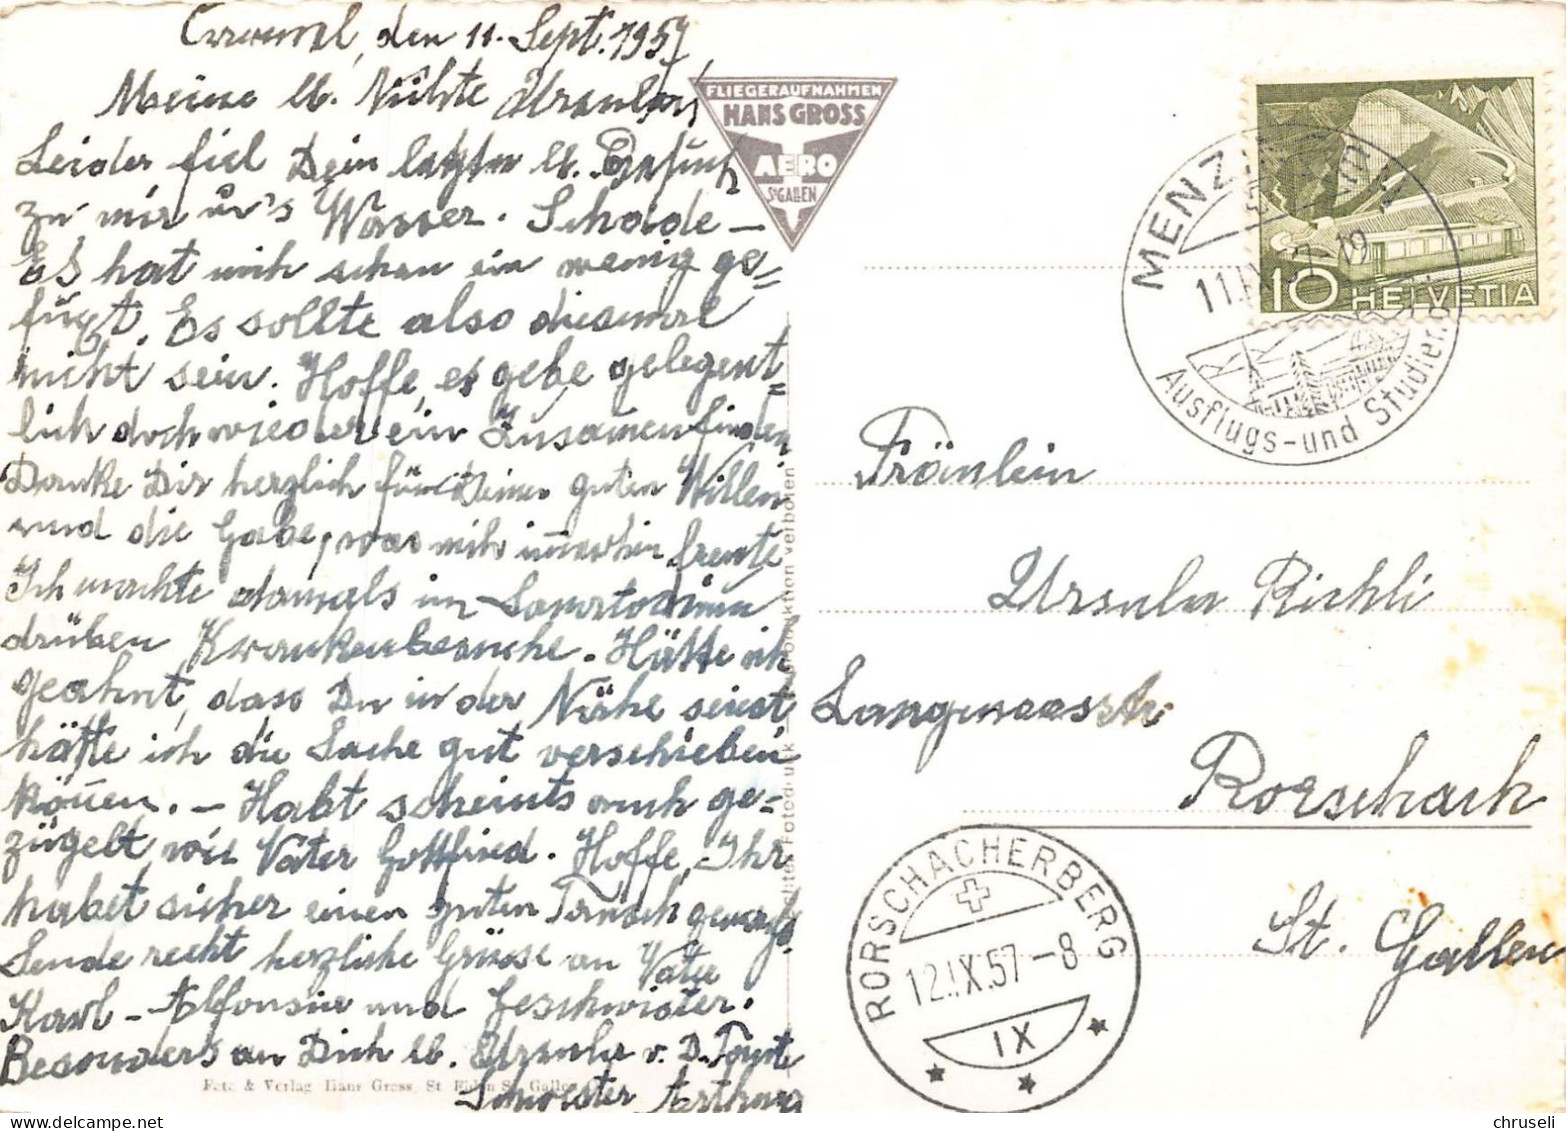 den 11. Sept. 1957
Meine lb. Nichte Ursula,
Leider fiel Dein letzter lb. Besuch
zu mir in's Wasser. Schade –
Es hat mich schon ein wenig ge=
fügt. Es sollte also diesmal
nicht sein. Hoffe, es gebe gelegent=
lich doch wieder ein Zusammenfinden
Danke Dir herzlich für Deinen guten Willen
und die Gabe, was mich immerhin freute
Ich machte damals im Sanatorium
drüben Krankenbesuche. Hätte ich
geahnt, dass Du in der Nähe seiest
hätte ich die Sache gut verschieben
können. – Habt scheints auch ge=
zügelt wie Vater Gottfried. Hoffe, Ihr
habet sicher einen guten Tausch gemacht
Sende recht herzliche Grüsse an Vater
Karl – Alfonsina und Geschwister.
Besonders an Dich lb. Ursula v. D. Tante
Schwester
Foto & Verlag Hans Gross, St. Fiden St. Gallen
FLIEGERAUFNAHMEN
HANS GROSS
AERO
ST. GALLEN
verboten
MENZINGEN
11.IX.57-19
Ausflugs- und
10 HELVETIA
Fräulein
Ursula Richli
Rorschach
St. Gallen
RORSCHACHERBERG
12.IX.57-8
IX
chruseli